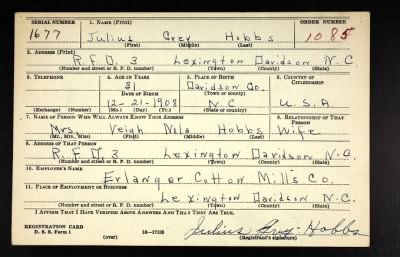 SERIAL NUMBER 1. NAME (Print) ORDER NUMBER
1677 Julius Grey Hobbs 1085
(First) (Middle) (Last)
2. ADDRESS (Print)
R.F.D. 3 Lexington Davidson N.C.
(Number and street or R. F. D. number) (Town) (County) (State)
3. TELEPHONE 4. AGE IN YEARS 5. PLACE OF BIRTH 6. COUNTRY OF CITIZENSHIP
31 Davidson Co.
DATE OF BIRTH (Town or county)
12-21-1908 N.C U.S.A
(Exchange) (Number) (Mo.) (Day) (Yr.) (State or country)
7. NAME OF PERSON WHO WILL ALWAYS KNOW YOUR ADDRESS 8. RELATIONSHIP OF THAT PERSON
Mrs. Veigh Nola Hobbs Wife
(Mr., Mrs., Miss) (First) (Middle) (Last)
9. ADDRESS OF THAT PERSON
R.F.D 3 Lexington Davidson N.C.
(Number and street or R. F. D. number) (Town) (County) (State)
10. EMPLOYER'S NAME
Erlanger Cotton Mills Co.
11. PLACE OF EMPLOYMENT OR BUSINESS
Lexington Davidson N.C.
(Number and street or R. F. D. number) (Town) (County) (State)
I AFFIRM THAT I HAVE VERIFIED ABOVE ANSWERS AND THAT THEY ARE TRUE.
REGISTRATION CARD
D. S. S. Form 1 (over) 16—17105 Julius Grey Hobbs
(Registrant's signature)